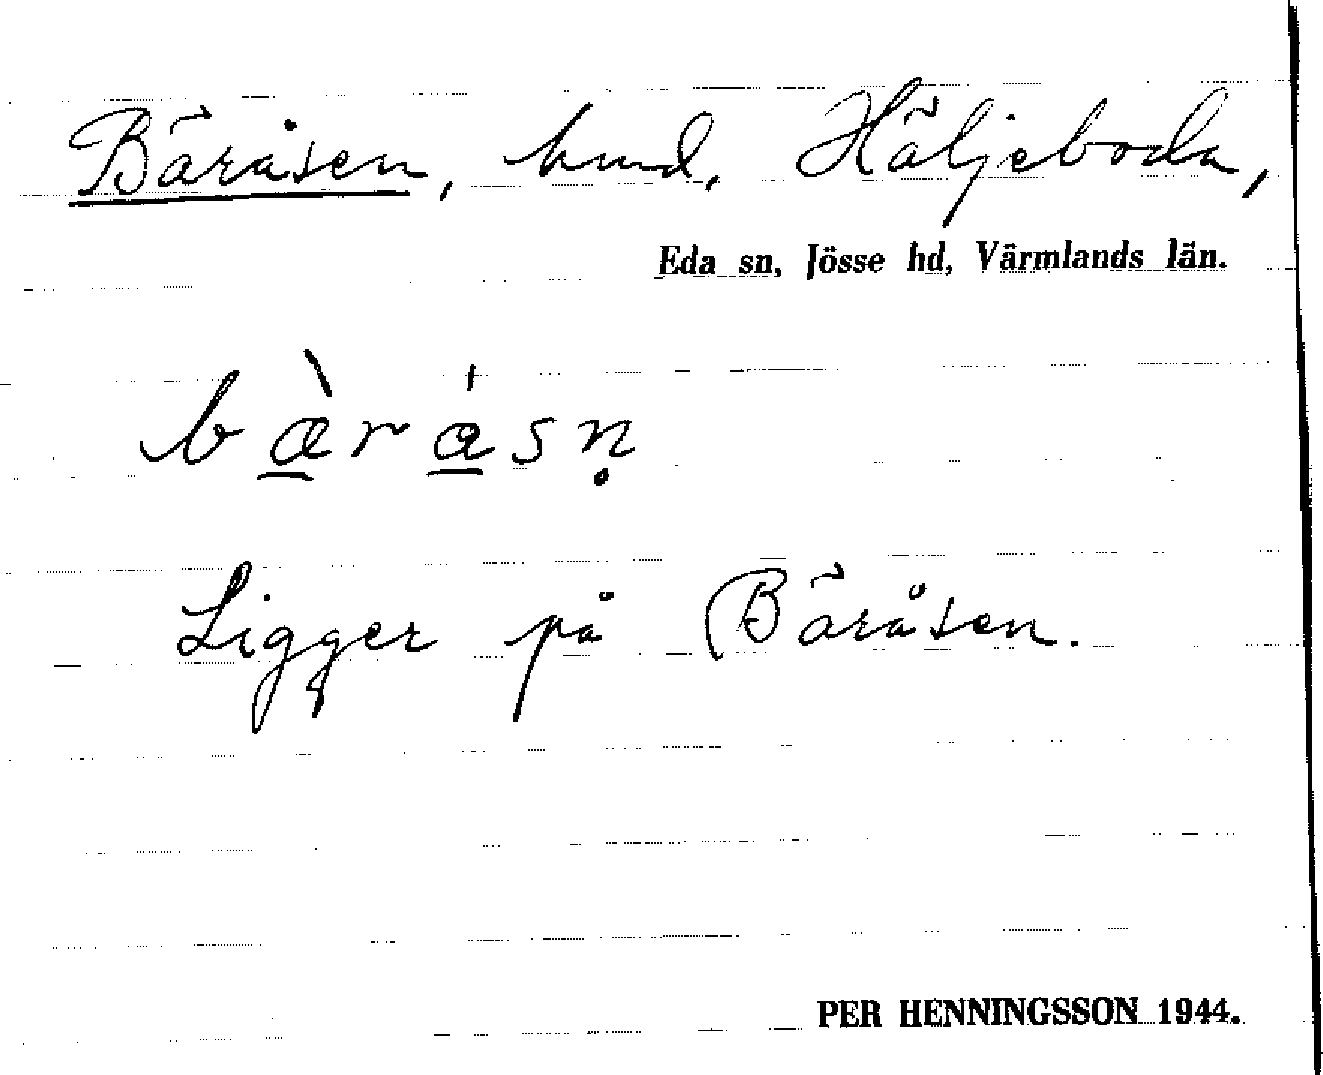 Bäråsen, hmd, Häljeboda,
Eda sn, Jösse hd, Värmlands län.
bæ̀rásn̥
Ligger på Bäråsen.
PER HENNINGSSON 1944.